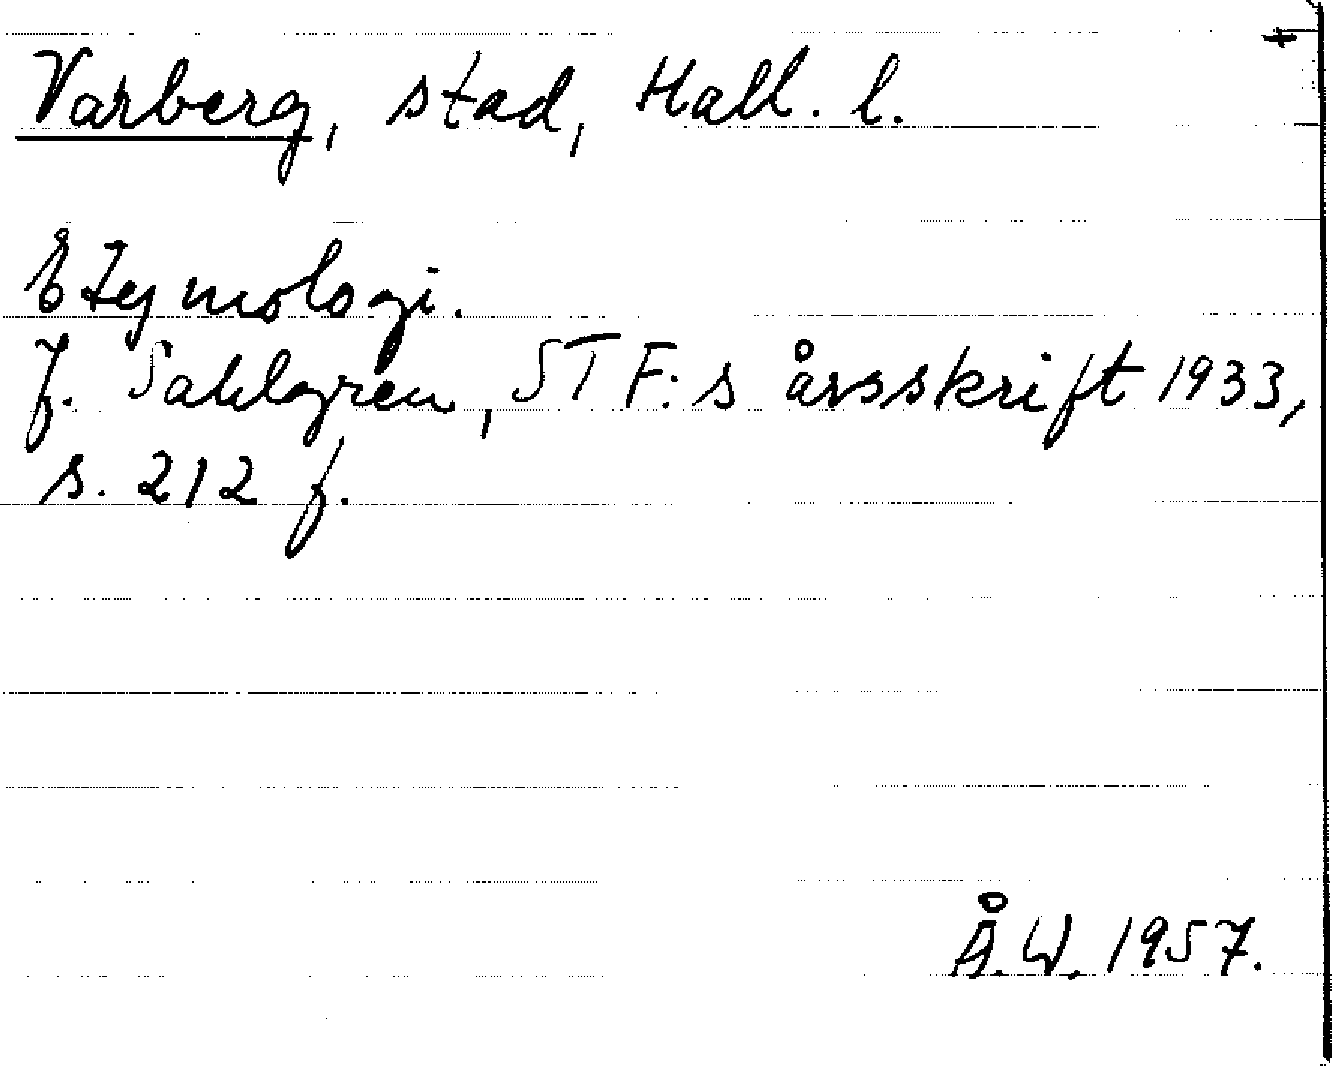 Varberg, stad, Hall. l.
Etymologi.
J. Sahlgren, STF:s årsskrift 1933,
s. 212 f.
Å.W. 1957.